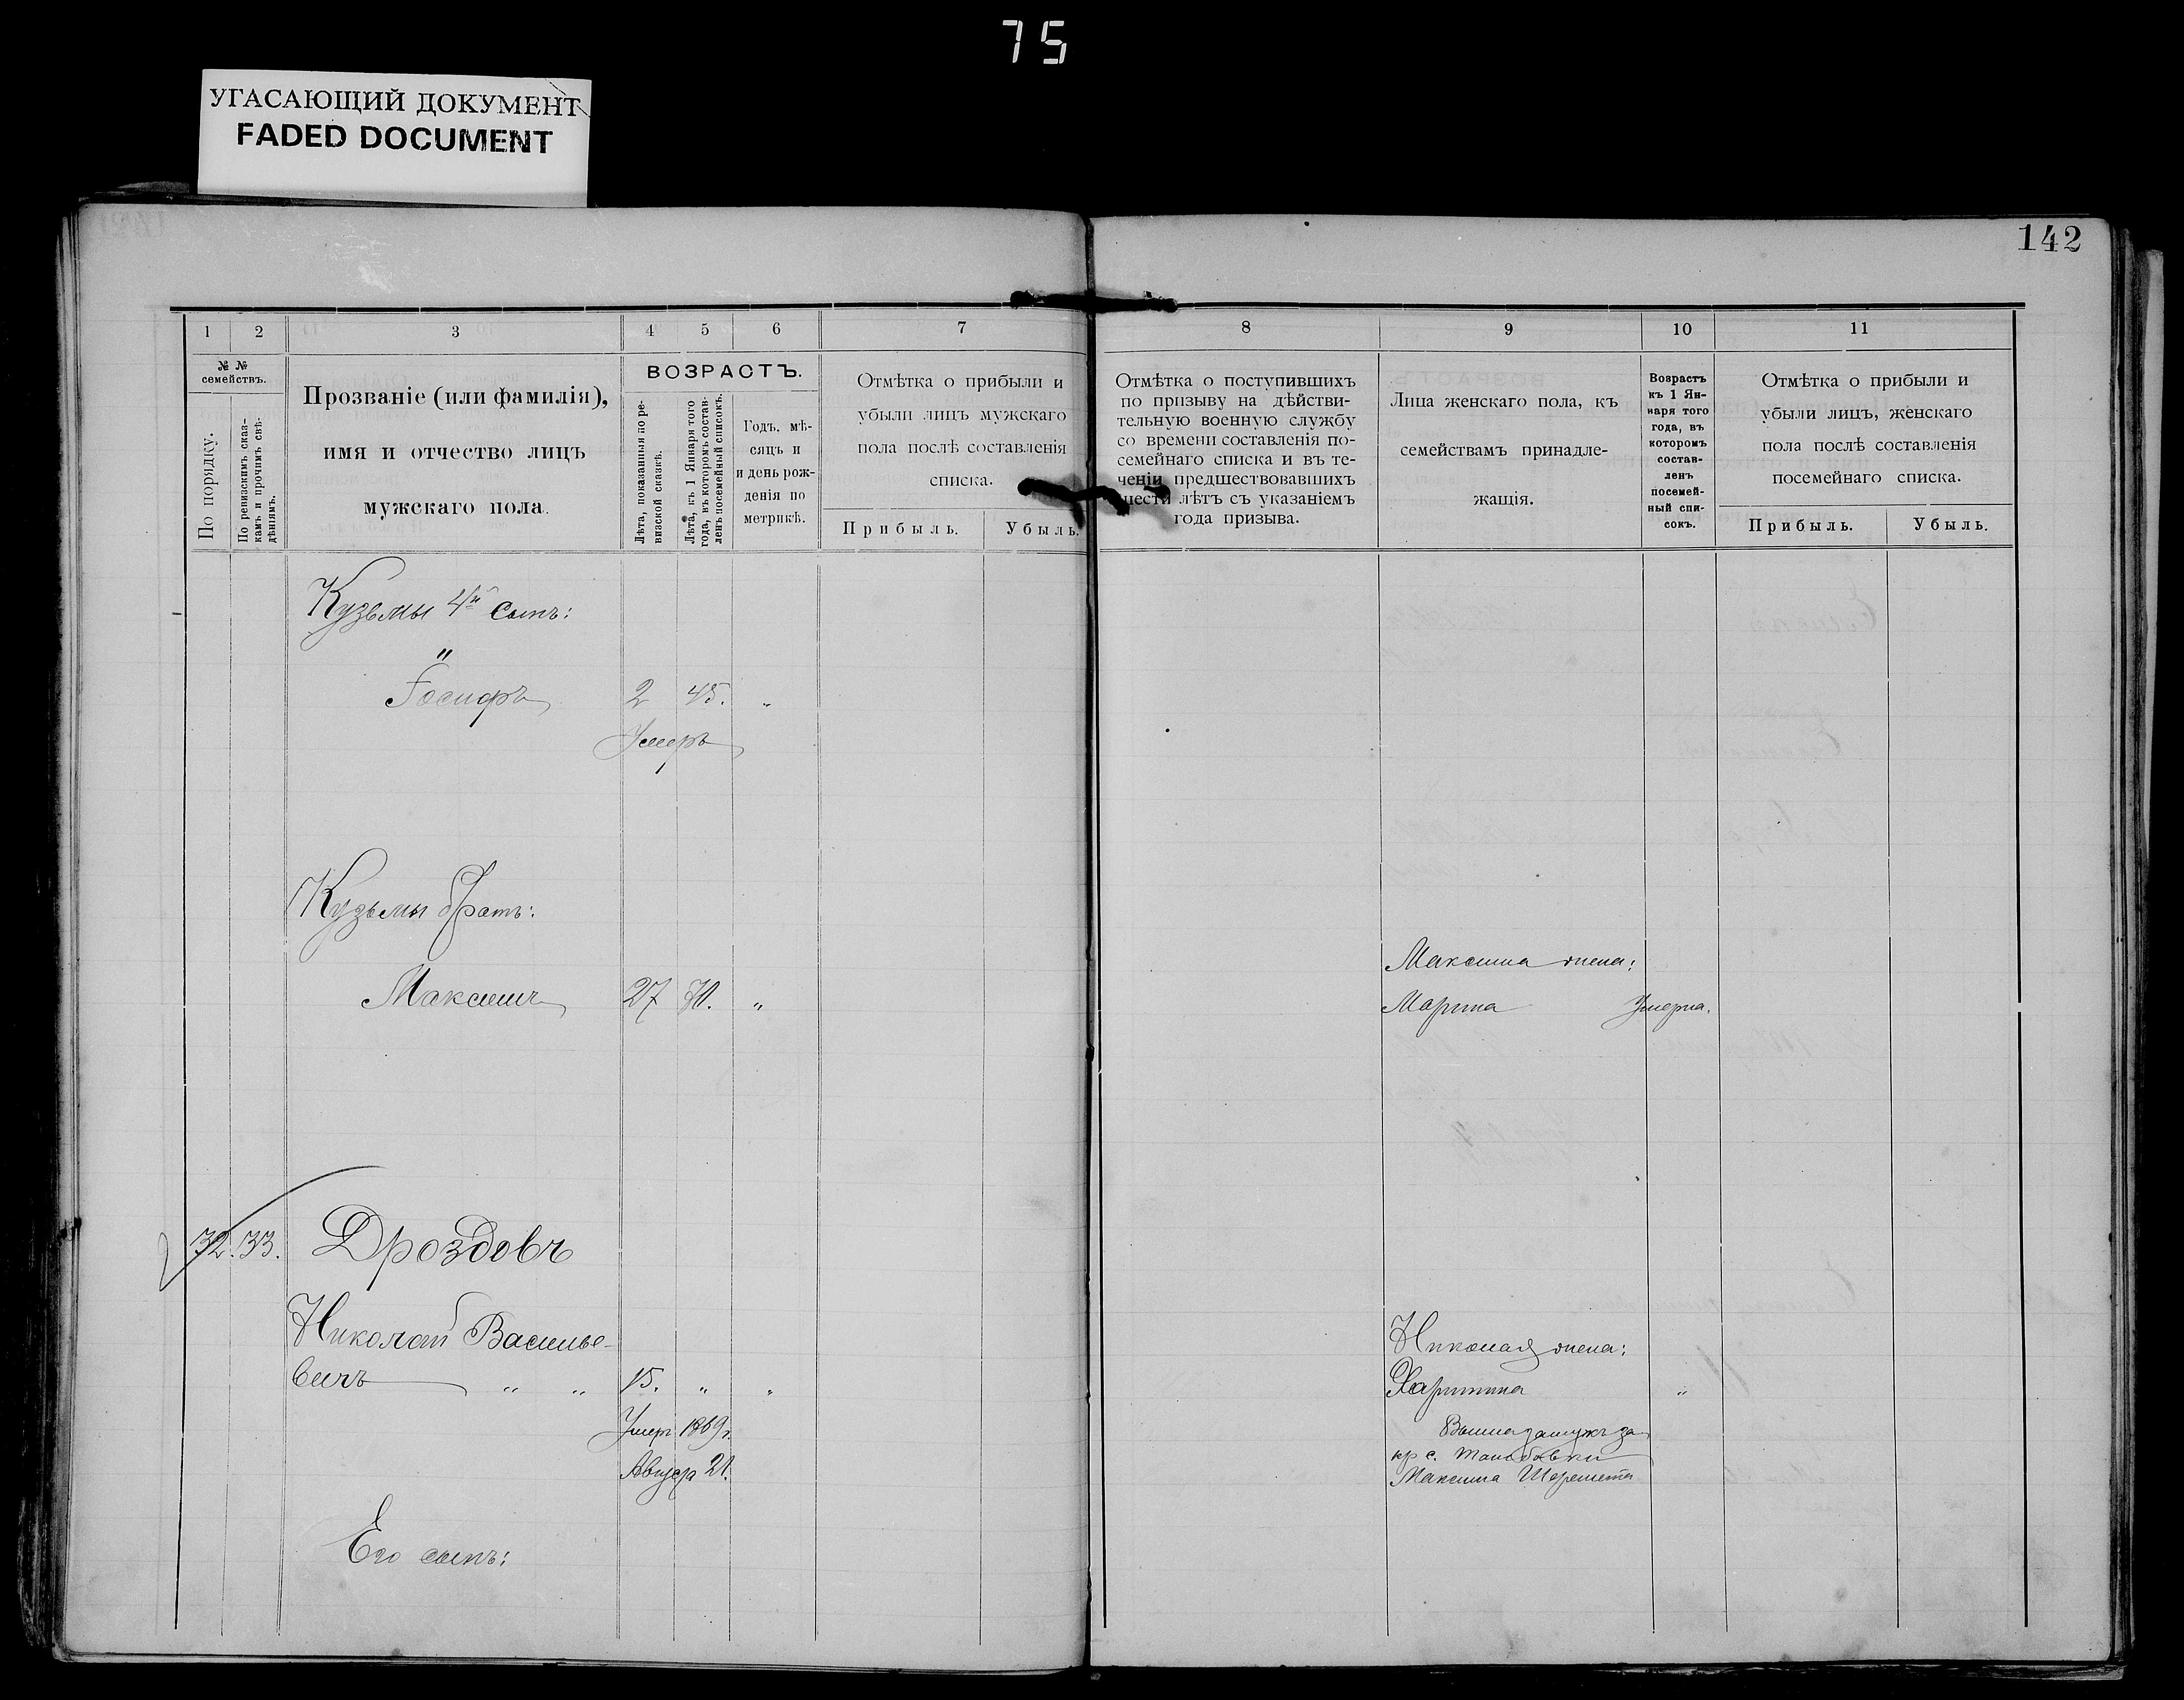 75
УГАСАЮЩИЙ ДОКУМЕНТ
FADED DOCUMENT
142
1 2 3 4 5 6 7
№ №
семействъ.
По порядку.
По ревизскимъ сказ-
камъ и прочимъ свѣ-
дѣніямъ.
Прозваніе (или фамилія),
имя и отчество лицъ
мужскаго пола.
ВОЗРАСТЪ.
Лѣта, показанныя по ре-
визской сказкѣ.
Лѣта, къ 1 Января того
года, въ которомъ состав-
ленъ посемейный списокъ.
Годъ, мѣ-
сяцъ и
и день рож-
денія по
метрикѣ.
Отмѣтка о прибыли и
убыли лицъ мужскаго
пола послѣ составленія
списка.
Прибыль. Убыль.
8 9 10 11
Отмѣтка о поступившихъ
по призыву на дѣйстви-
тельную военную службу
со времени составленія по-
семейнаго списка и въ те-
ченіи предшествовавшихъ
шести лѣтъ съ указаніемъ
года призыва.
Лица женскаго пола, къ
семействамъ принадле-
жащія.
Возрастъ
къ 1 Ян-
варя того
года, въ
которомъ
состав-
ленъ
посемей-
ный спи-
сокъ.
Отмѣтка о прибыли и
убыли лицъ, женскаго
пола послѣ составленія
посемейнаго списка.
Прибыль. Убыль.
Кузьмы 4й сынъ:
"
Іосифъ 2 45. "
Умеръ
Кузьмы братъ:
Максима жена:
Максимъ 27 70. "
Марина Умерла.
32. 33. Дроздовъ
Николай Василье-
вичъ " " 15. " "
Умеръ 1869 г.
Августа 21.
Николая жена:
Харитина "
Вышла замужъ за
кр с.
Максима Шеремета
Его сынъ: